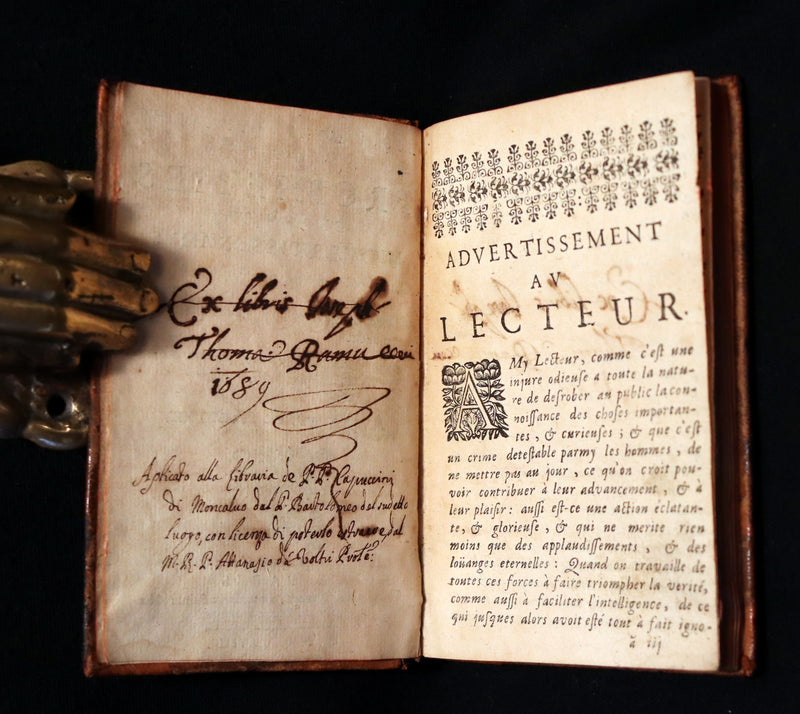 Ex libris
Thoma
1689
Aplicato alla libraria de P.P. Capuccini
di Moncaluo dal P. Bartolomeo del sudetto
luogo, con licenza di poterlo estraere, dal
M. R. P. Attanasio da Voltri
ADVERTISSEMENT
AV
LECTEUR.
AMy Lecteur, comme c'est une
injure odieuse a toute la natu-
re de desrober au public la con-
noissance des choses importan-
tes, & curieuses; & que c'est
un crime detestable parmy les hommes, de
ne mettre pas au jour, ce qu'on croit pou-
voir contribuer à leur advancement, & à
leur plaisir: aussi est-ce une action éclatan-
te, & glorieuse, & qui ne merite rien
moins que des applaudissements, & des
loüanges eternelles: Quand on travaille de
toutes ces forces à faire triompher la verité,
comme aussi à faciliter l'intelligence, de ce
qui jusques alors avoit esté tout à fait igno-
ã iij